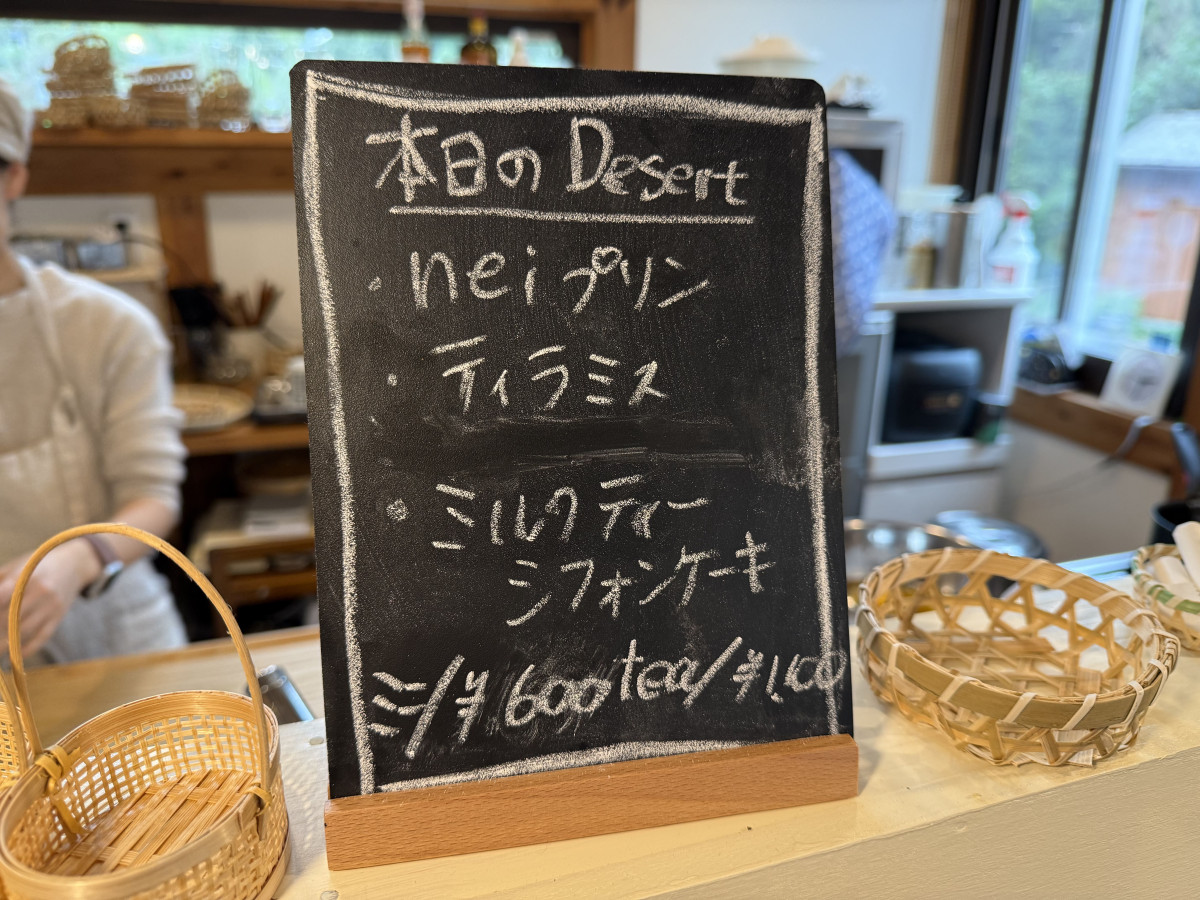 本日の Desert
・nei プリン
・ティラミス
・ミルクティー
シフォンケーキ
ミ/¥600 tea/¥1,100